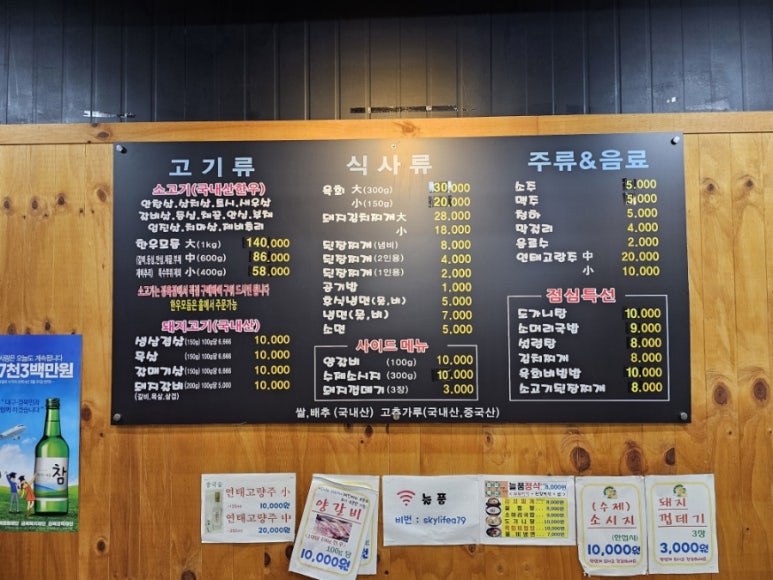 고기류
소고기(국내산한우)
안창살.살치살.토시.새우살
갈비살.등심.채끝.안심.부채
업진살.치마살.제비추리
한우모듬 大(1kg) 140,000
中(600g) 86,000
小(400g) 58,000
한우모듬은 홀에서 주문가능
돼지고기(국내산)
생삼겹살(150g) 100g당 6,666 10,000
목살(150g) 100g당 6,666 10,000
갈매기살(150g) 100g당 6,666 10,000
돼지갈비(200g) 100g당 5,000 10,000
(갈비,목살,삼겹)
식사류
육회 大(300g) 30,000
小(150g) 20,000
돼지김치찌개 大 28,000
小 18,000
된장찌개(냄비) 8,000
된장찌개(2인용) 4,000
된장찌개(1인용) 2,000
공기밥 1,000
후식냉면(물,비) 5,000
냉면(물,비) 7,000
소면 5,000
사이드 메뉴
양갈비 (100g) 10,000
수제소시지 (300g) 10,000
돼지껍데기 (3장) 3,000
주류&음료
소주 5,000
맥주 5,000
청하 5,000
막걸리 4,000
음료수 2,000
연태고량주 中 20,000
小 10,000
점심특선
도가니탕 10,000
소머리국밥 9,000
설렁탕 8,000
김치찌개 8,000
육회비빔밥 10,000
소고기된장찌개 8,000
쌀,배추 (국내산) 고춧가루(국내산,중국산)
7천3백만원
참
연태고량주 小
10,000원
연태고량주 中
20,000원
양갈비
100g당
10,000원
늘품
비번 : skylifea79
늘품정식
(수제)
소시지
10,000원
돼지
껍데기
3장
3,000원